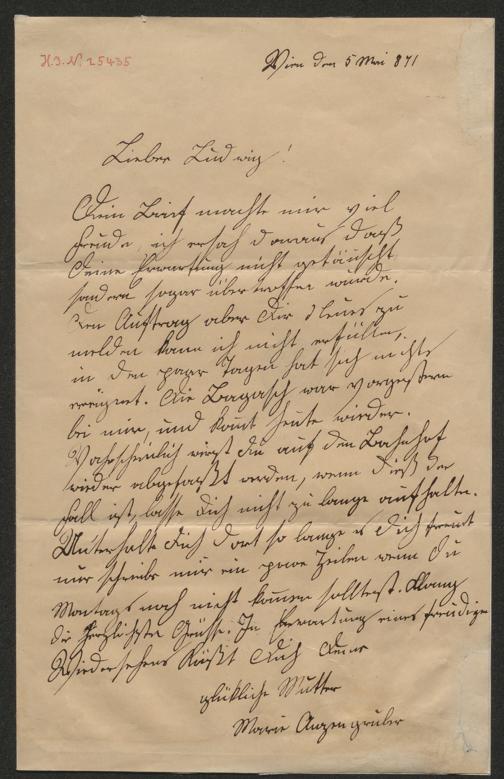 H.I.N. 25435
Wien den 5 Mai 871
Lieber Ludwig!
Dein Brief machte mir viel
Freude, ich ersah daraus daß
Deine Erwartung nicht getäuscht
sondern sogar übertroffen wurde.
Den Auftrag aber Dir Neues zu
melden kann ich nicht erfüllen,
in den paar Tagen hat sich nichts
ereignet. Die Bagasch war vorgestern
bei mir, und komt heute wieder.
Wahrscheinlich wirst Du auf dem Bahnhof
wieder abgefaßt werden, wenn dieß der
Fall ist, lasse Dich nicht zu lange aufhalten.
Unterhalte Dich dort so lange es Dich freut
nur schreibe mir ein paar Zeilen wenn Du
Montags noch nicht komen solltest.
die herzlichste Grüsse. In Erwartung eines freudigen
Wiedersehens Küßt Dich Deine
glükliche Mutter
Marie Anzengruber